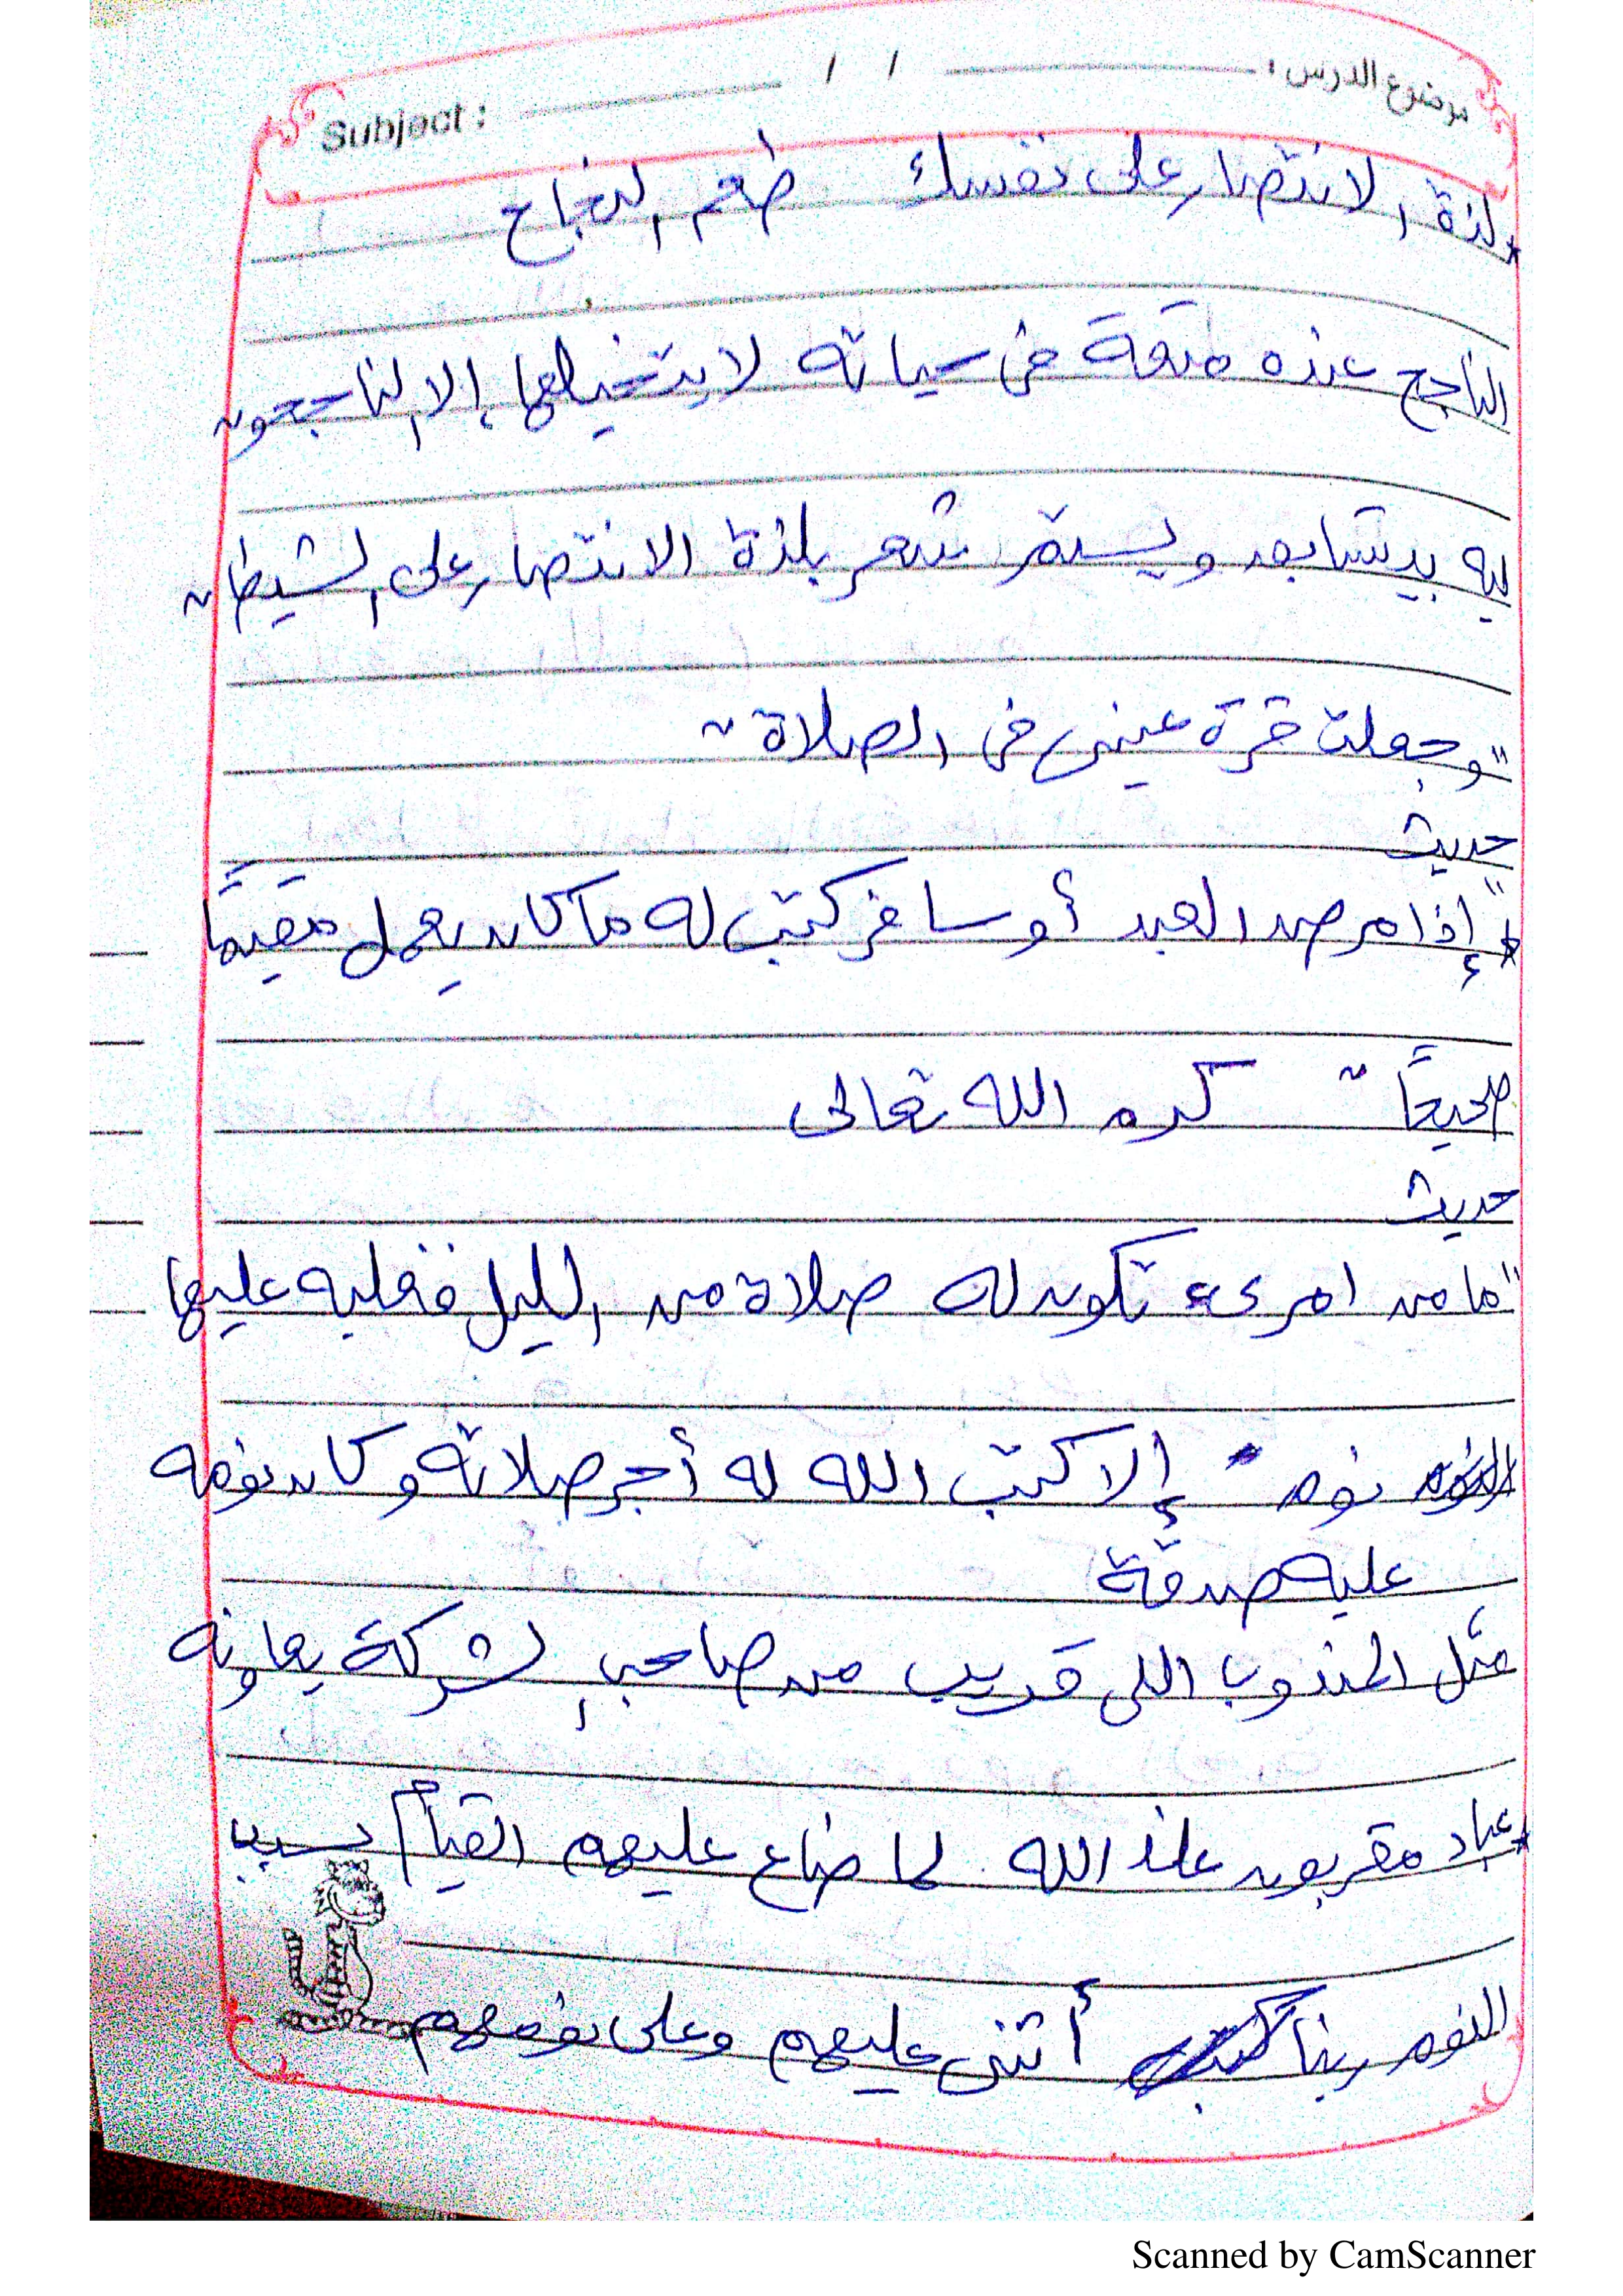 موضوع الدرس : / / Subject :
* لذة الانتصار على نفسك طعم النجاح
الناجح عنده متعة فى حياته لا يتخيلها إلا الناجحون
ليه بيتسابق ويستمر شعر بلذة الانتصار على الشيطان
"وجعلت قرة عينى فى الصلاة"
حديث
* "إذا مرض العبد أو سافر كتب له ما كان يعمل مقيمًا
صحيحًا" كرم الله تعالى
حديث
"ما من امرىء تكون له صلاة من الليل فغلبه عليها
نوم إلا كتب الله له أجر صلاته وكان نومه
عليه صدقة
مثل المندوب اللى قريب من صاحب الشركة يعاونه
* عباد مقربون عند الله لما ضاع عليهم القيام بسبب
النوم ربنا أثنى عليهم وعلى نومهم
Scanned by CamScanner